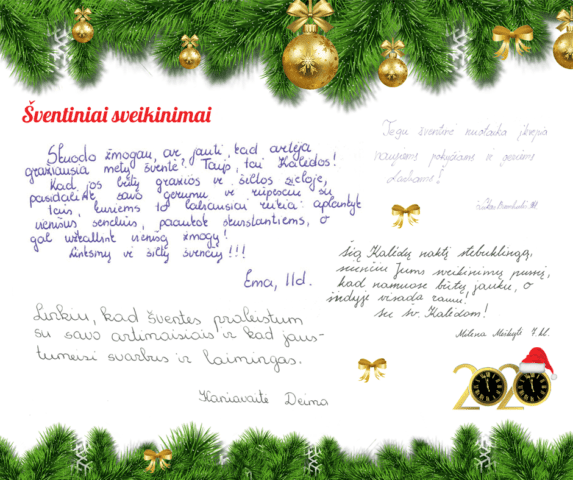 Šventiniai sveikinimai
Skuodo žmogau, ar jauti, kad artėja
gražiausia metų šventė? Taip, tai Kalėdos!
Kad jos būtų gražios ir šiltos sieloje,
pasidalink savo gerumu ir rūpesčiu su
tais, kuriems to labiausiai reikia: aplankyk
vienišus senelius, paaukok skurstantiems, o
gal užkalbink vienišą žmogų!
Linksmų ir šiltų švenčių!!!
Ema, IId.
Linkiu, kad šventes praleistum
su savo artimaisiais ir kad jaus-
tumeisi svarbus ir laimingas.
Kaniavaitė Deima
Tegu šventinė nuotaika įkvepia
naujiems pokyčiams ir geriems
darbams!
Šią Kalėdų naktį stebuklingą,
siunčiu Jums sveikinimų pusnį,
kad namuose būtų jauku, o
širdyje visada ramu!
Su šv. Kalėdom!
Milena 7 kl.
2020